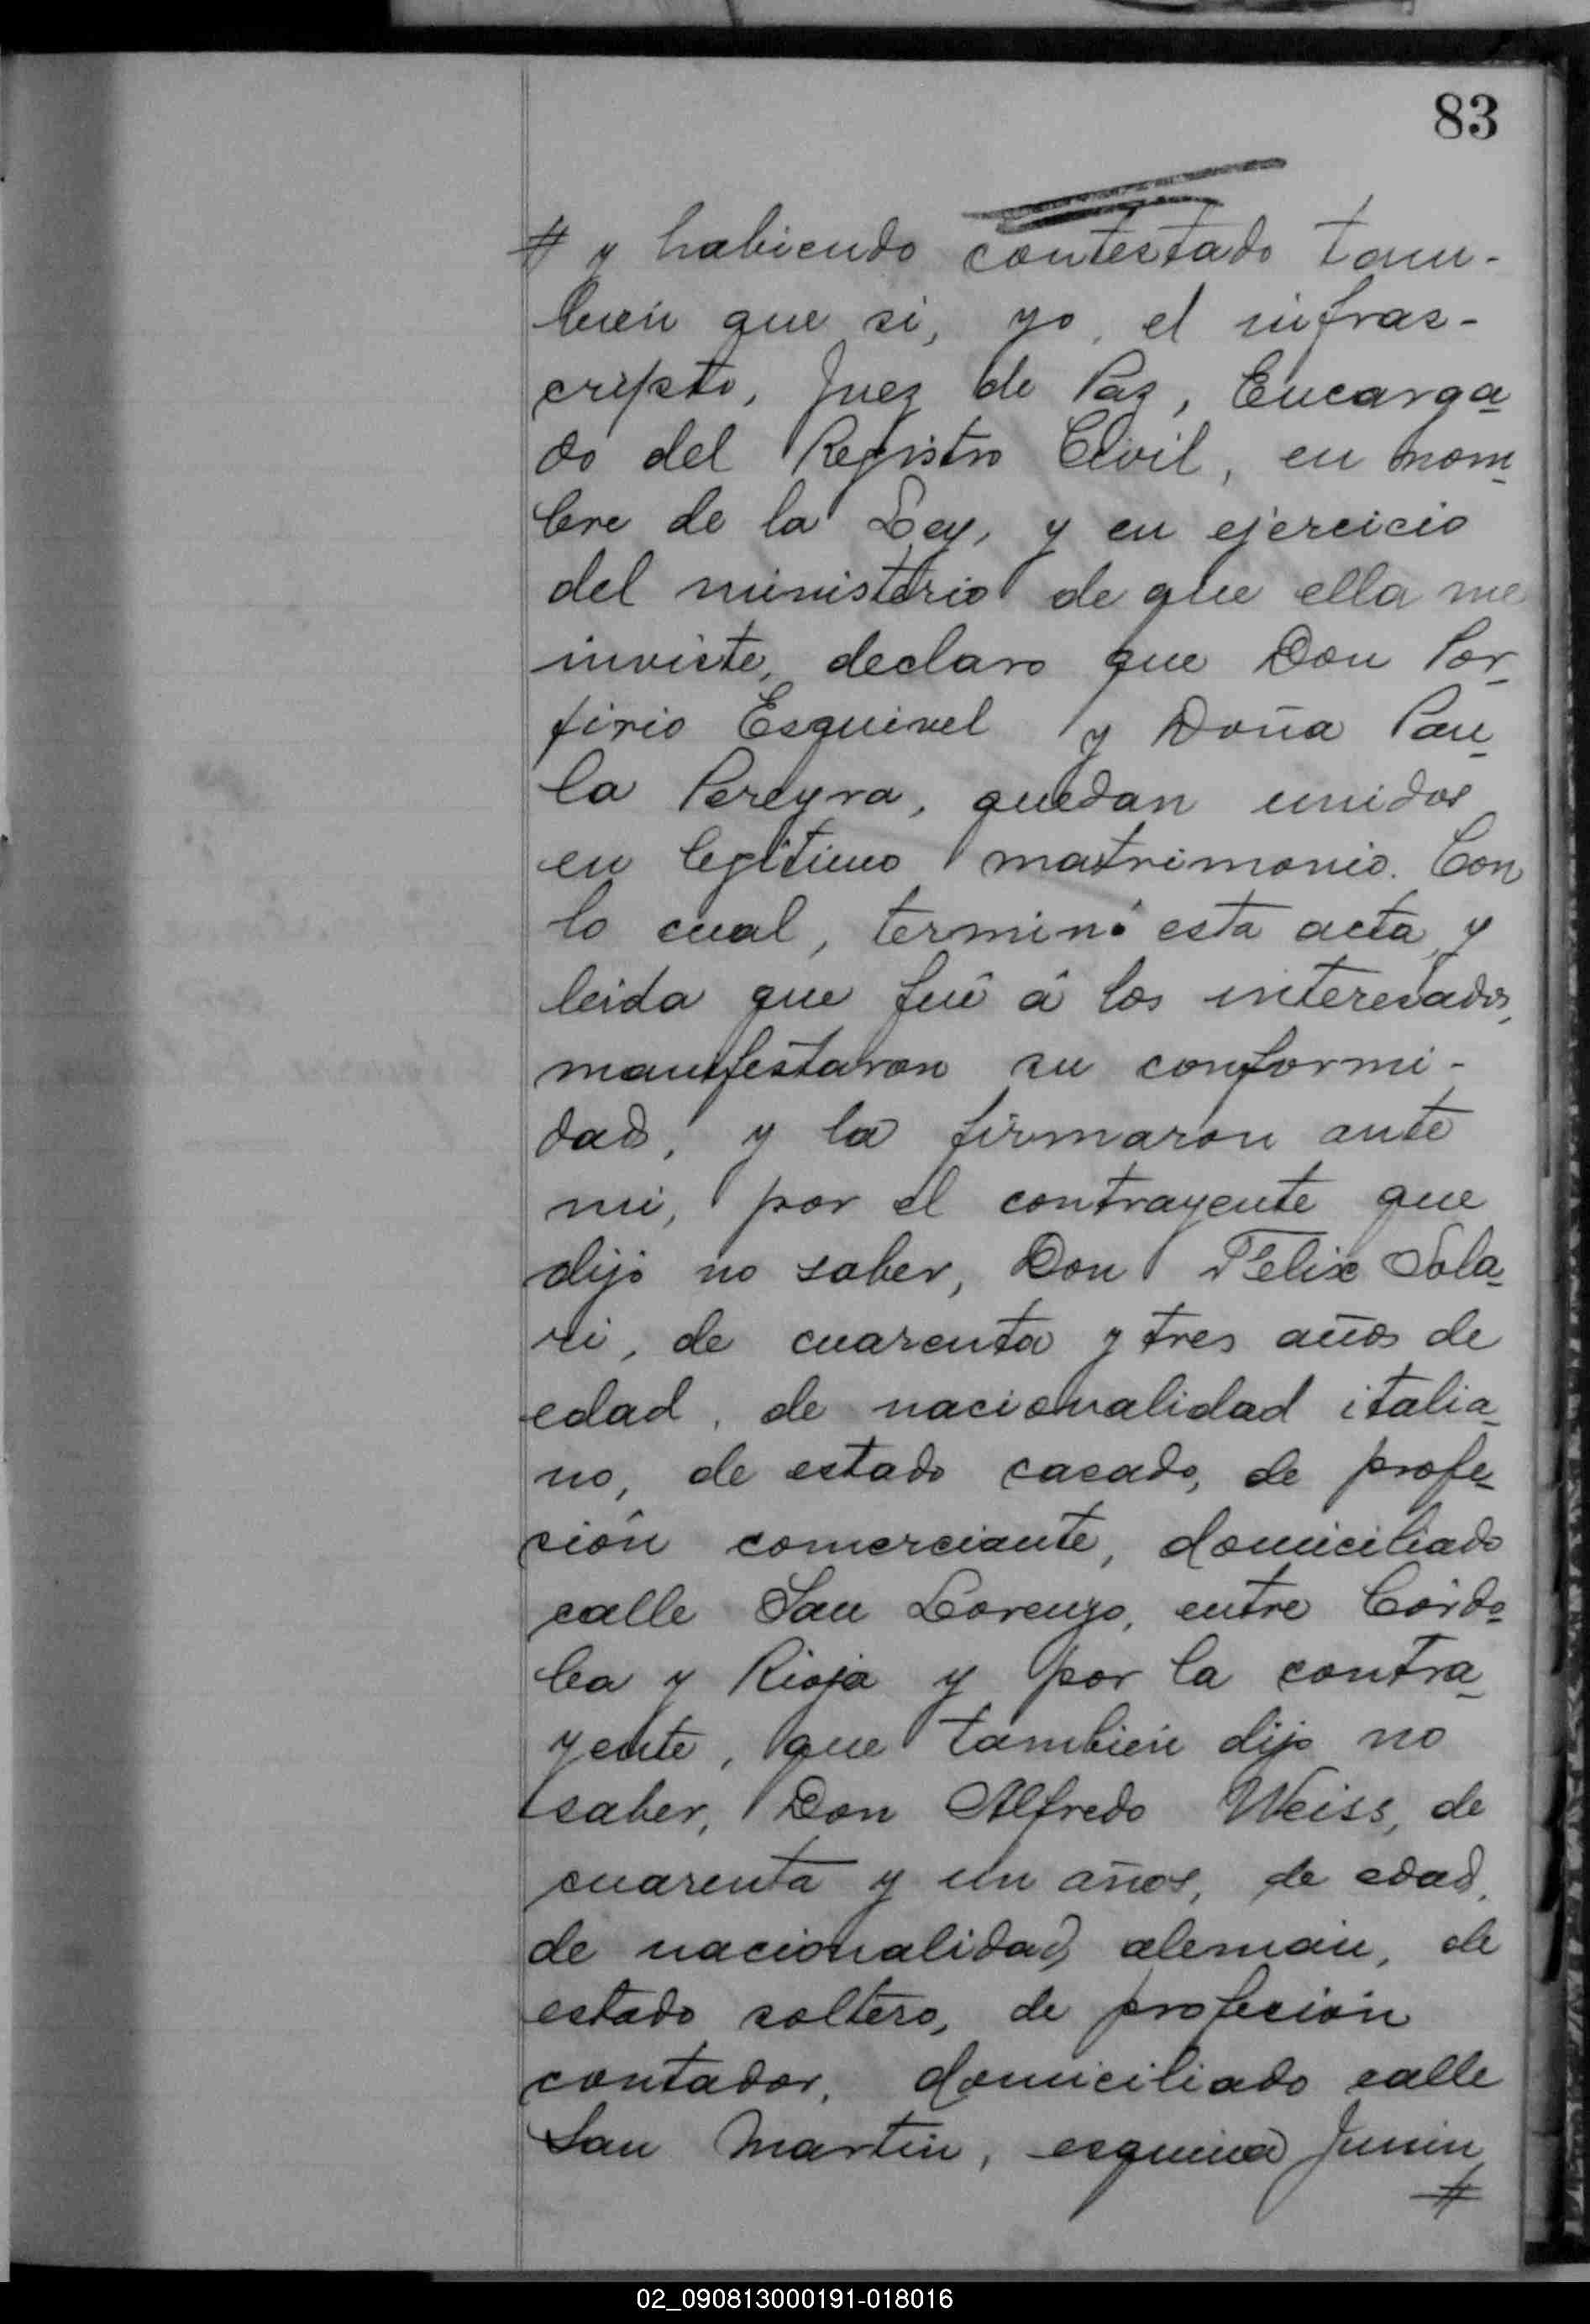 83
# y habiendo contestado tam-
bien que si, yo, el infras-
cripto, Juez de Paz, Encarga-
do del Registro Civil, en nom-
bre de la Ley, y en ejercicio
del ministerio de que ella me
inviste, declaro que Don Por-
firio Esquivel y Doña Pau-
la Pereyra, quedan unidos
en legitimo matrimonio. Con
lo cual, terminó esta acta, y
leida que fué á los interesados,
manifestaron su conformi-
dad, y la firmaron ante
mi, por el contrayente que
dijo no saber, Don Felix Sola-
ri, de cuarenta y tres años de
edad, de nacionalidad italia-
no, de estado casado, de profe-
sión comerciante, domiciliado
calle San Lorenzo, entre Córdo-
ba y Rioja y por la contra-
yente, que también dijo no
saber, Don Alfredo Weiss, de
cuarenta y un años, de edad,
de nacionalidad alemán, de
estado soltero, de profesión
contador, domiciliado calle
San Martin, esquina Junin
#
02_090813000191-018016